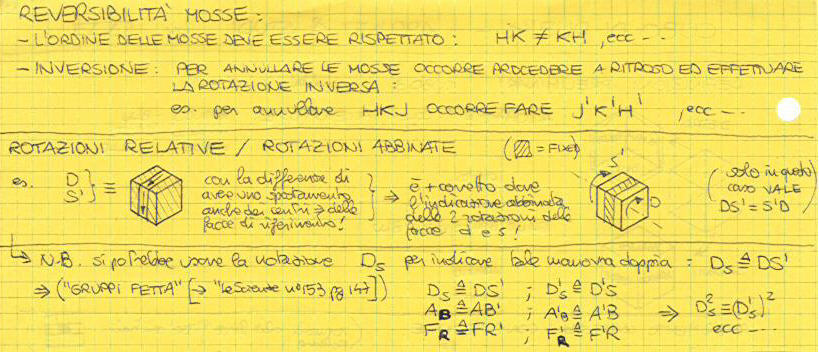 REVERSIBILITA' MOSSE :
- L'ORDINE DELLE MOSSE DEVE ESSERE RISPETTATO : HK ≠ KH , ecc ---
- INVERSIONE : PER ANNULLARE LE MOSSE OCCORRE PROCEDERE A RITROSO ED EFFETTUARE
LA ROTAZIONE INVERSA :
es. per annullare HKJ OCCORRE FARE J'K'H' , ecc ---
ROTAZIONI RELATIVE / ROTAZIONI ABBINATE ( = FIXED)
es. D
S' } ≡
con la differenza di
avere uno spostamento
anche dei centri → delle
facce di riferimento!
⇒ è + corretto dare
l'indicazione abbinata
delle 2 rotazioni delle
facce d e s !
S'
D
( solo in questo
caso VALE
DS' = S'D )
↳ N.B. si potrebbe usare la notazione Ds per indicare tale manovra doppia : Ds ≙ DS'
⇒ ("GRUPPI FETTA" [→ "Le Scienze" nº153 pg 147])
Ds ≙ DS' ; D's ≙ D'S
AB ≙ AB' ; A'B ≙ A'B ⇒ Ds² ≡ (D's)²
FR ≙ FR' ; F'R ≙ F'R ecc ---